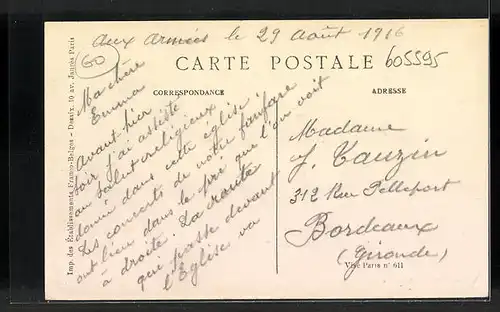 Aux Armées le 29 Août 1916
60
605595
CARTE POSTALE
CORRESPONDANCE
ADRESSE
Ma chère
Emma
Avant-hier
soir j'ai assisté
au salut religieux
donné dans cette église.
Les concerts de notre fanfare
ont lieu dans le pré que l'on voit
à droite. La route
qui passe devant
l'Eglise va
Madame
J. Tauzin
312 Rue Pelleport
Bordeaux
(Gironde)
Visé Paris n° 611
Imp. des Etablissements Franco-Belges - Desaix, 10 av. Paris